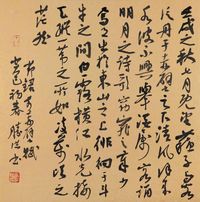 壬戌之秋七月既望蘇子與
客泛舟遊於赤壁之下清風徐來
水波不興舉酒屬客誦
明月之詩歌窈窕之章少
焉月出於東山之上徘徊於斗
牛之間白露橫江水光接
天縱一葦之所如凌萬頃之
茫然
赤壁賦
初春
書